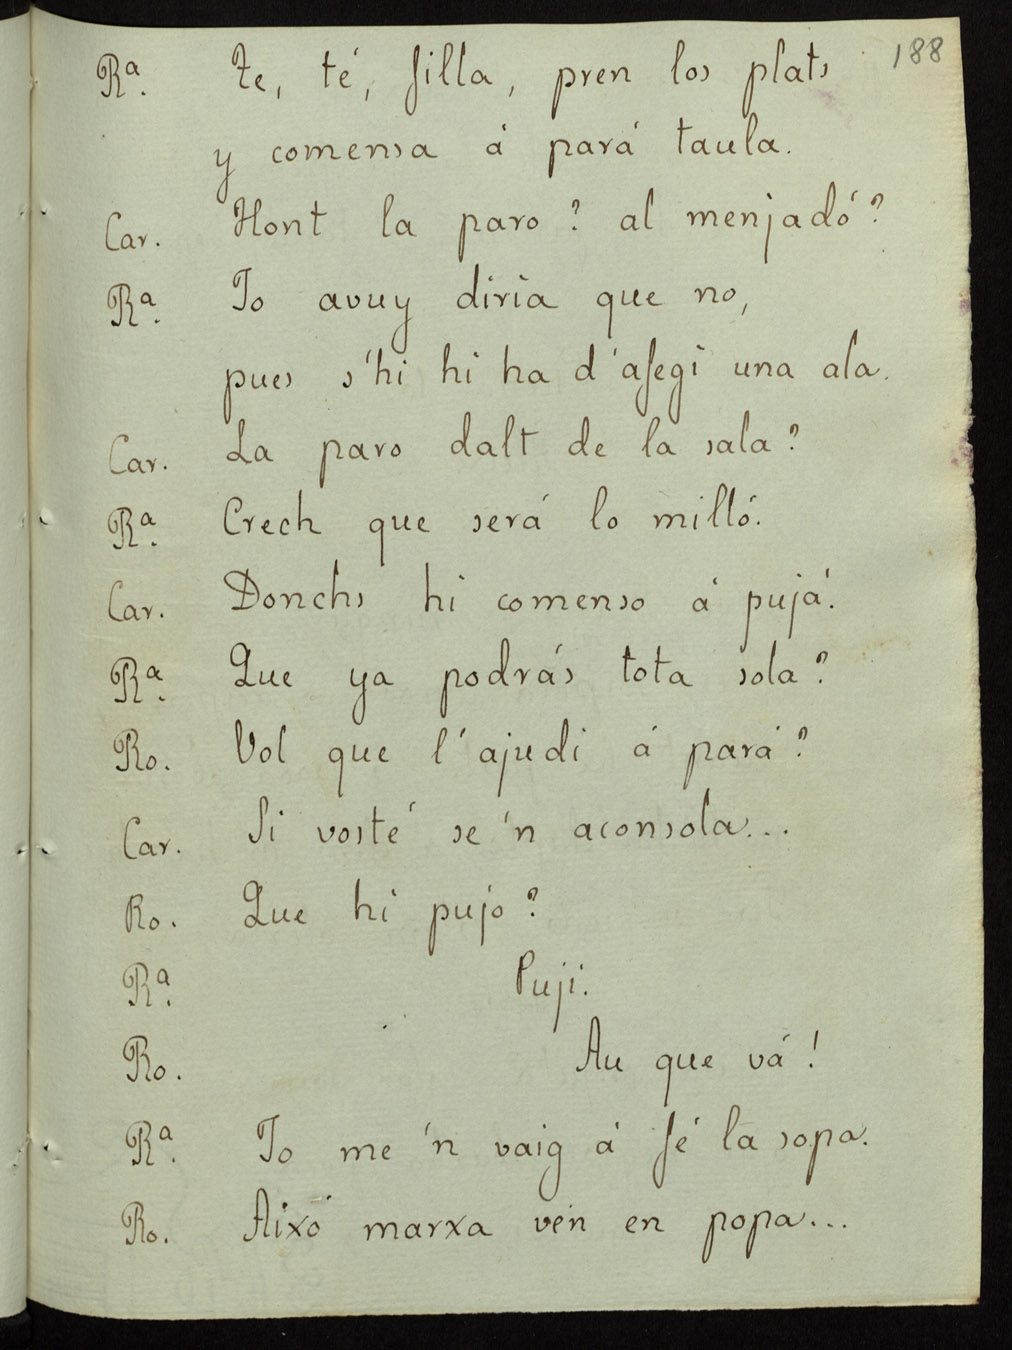 188
Rª. Te, té, filla, pren los plats
y comensa á pará taula.
Car. Hont la paro? al menjadó?
Rª. Jo avuy diria que no,
pues s'hi hi ha d'afegi una ala.
Car. La paro dalt de la sala?
Rª. Crech que será lo milló.
Car. Donchs hi comenso á pujá.
Rª. Que ya podrás tota sola?
Ro. Vol que l'ajudi á pará?
Car. Si vosté se 'n aconsola...
Ro. Que hi pujo?
Rª. Puji.
Ro. Au que vá!
Rª. Jo me 'n vaig á fé la sopa.
Ro. Aixó marxa ven en popa...